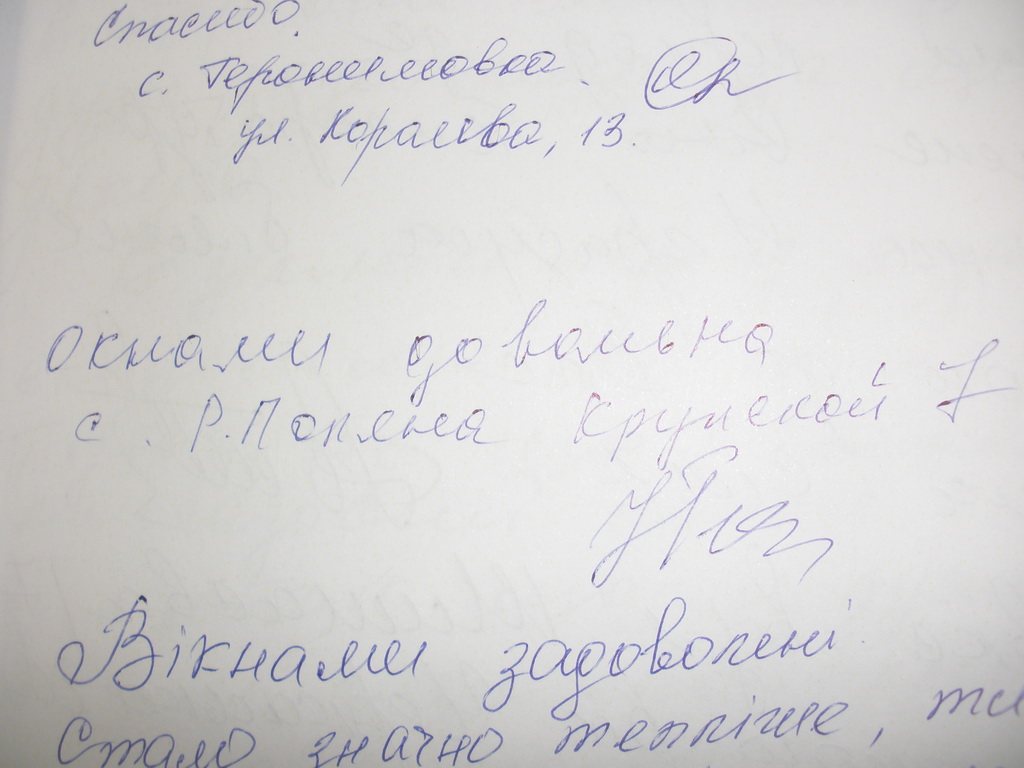 Спасибо.
с. Геронимовка.
ул. Королёва, 13.
Окнами довольна
с. Р. Поляна Крупской 7
Вікнами задоволені
Стало значно тепліше,